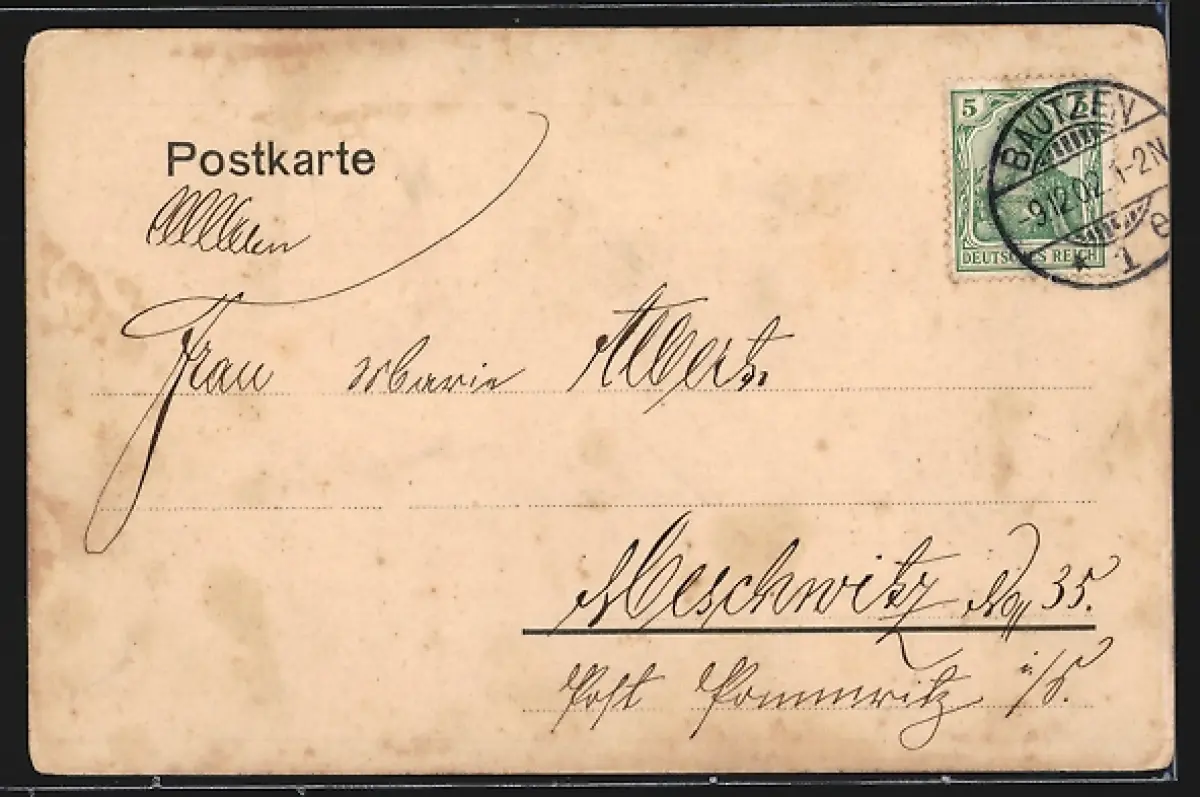 Postkarte
5 5
DEUTSCHES REICH
BAUTZEN
-9.12.02. 1-2N
* 1 e
Frau Marie Albert
Meschwitz No 35.
Post Pommritz i/S.